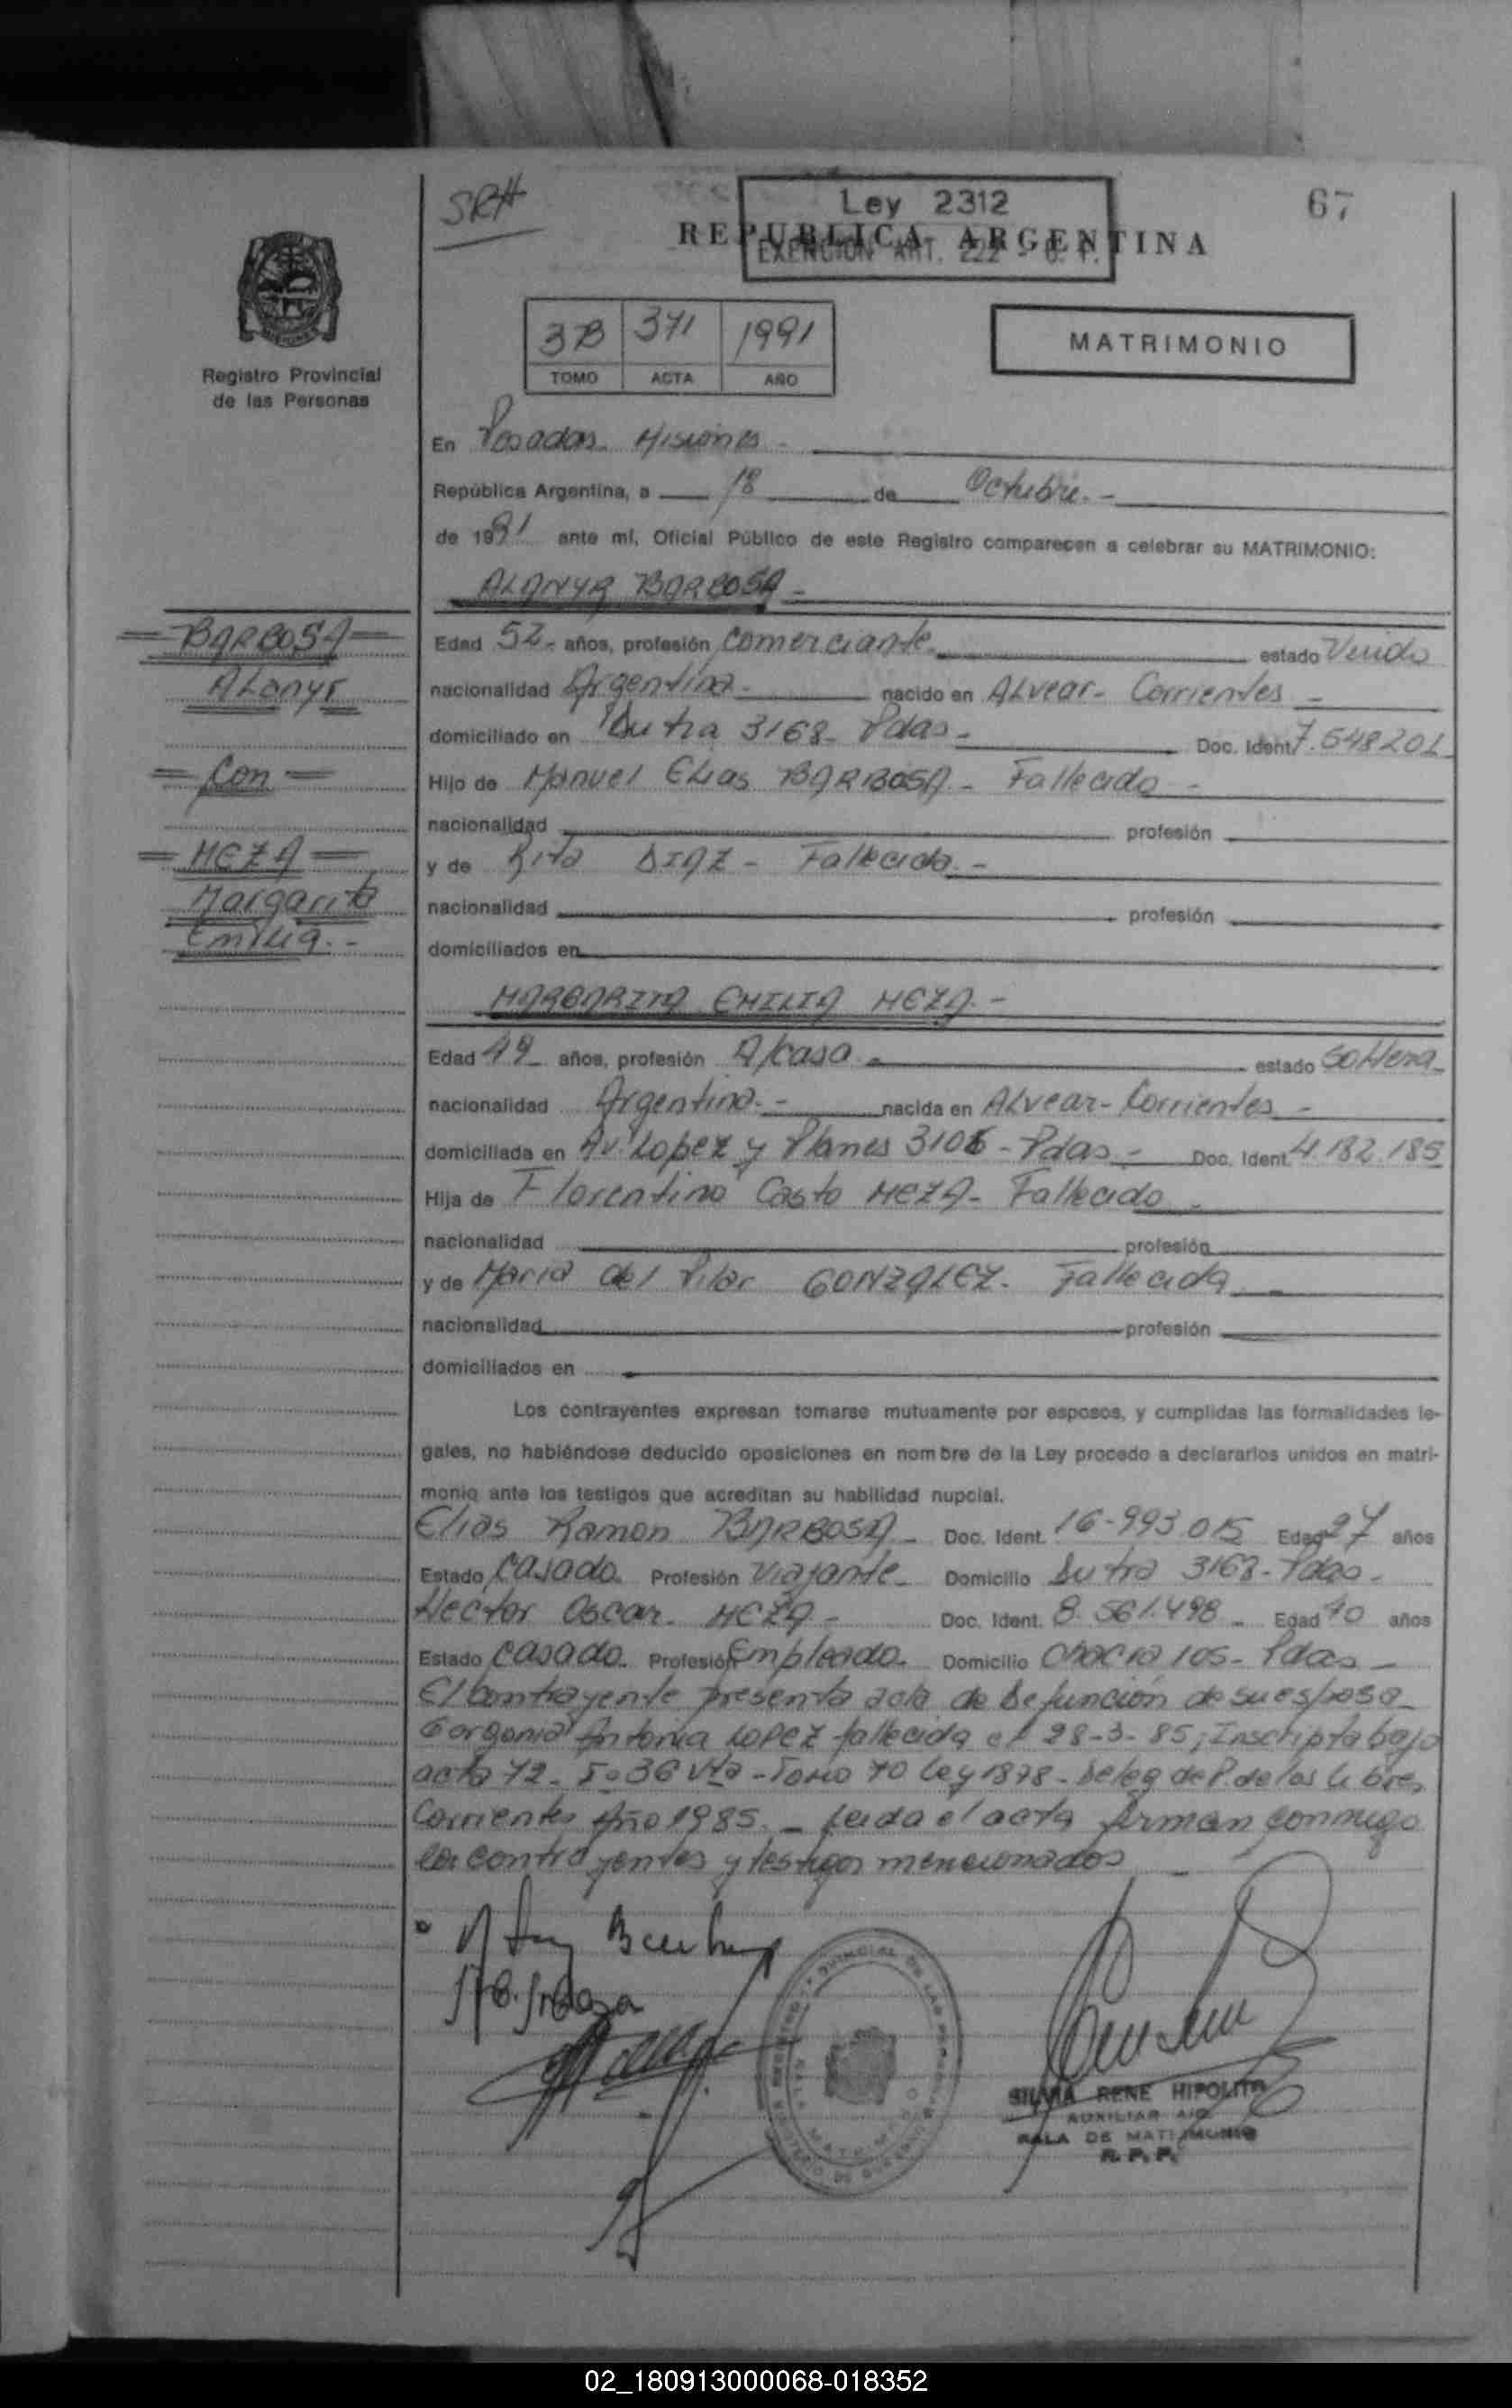 SRH
Ley 2312
67
REPUBLICA ARGENTINA
EXENCION ART. 222 -
Registro Provincial
de las Personas
3B 371 1991
TOMO ACTA AÑO
MATRIMONIO
En Posadas Misiones -
República Argentina, a 18 de Octubre. -
de 1991 ante mí, Oficial Público de este Registro comparecen a celebrar su MATRIMONIO:
ALANYR BARBOSA -
= BARBOSA =
Alanyr
= Con =
= MEZA =
Margarita
Emilia. -
Edad 52- años, profesión Comerciante. estado Viudo
nacionalidad Argentina. nacido en ALvear- Corrientes -
domiciliado en Dutra 3168- Pdas - Doc. Ident 7.648201
Hijo de Manuel Elias BARBOSA - Fallecido -
nacionalidad profesión
y de Rita DIAZ - Fallecida. -
nacionalidad profesión
domiciliados en
MARGARITA EMILIA MEZA. -
Edad 49 años, profesión A/casa - estado Soltera
nacionalidad Argentina. - nacida en ALvear- Corrientes -
domiciliada en Av. Lopez y Planes 3106 - Pdas - Doc. Ident. 4.182.185
Hija de Florentino Casto MEZA- Fallecido -
nacionalidad profesión
y de Maria del Pilar GONZALEZ. Fallecida -
nacionalidad profesión
domiciliados en
Los contrayentes expresan tomarse mutuamente por esposos, y cumplidas las formalidades le-
gales, no habiéndose deducido oposiciones en nombre de la Ley procedo a declararlos unidos en matri-
monio ante los testigos que acreditan su habilidad nupcial.
Elias Ramon BARBOSA - Doc. Ident. 16-993.015 Edad 27 años
Estado Casado. Profesión Viajante - Domicilio Dutra 3168- Pdas -
Hector Oscar. MEZA - Doc. Ident. 8.561.498 - Edad 40 años
Estado Casado. Profesión Empleado. Domicilio 105- Pdas -
El contrayente presenta acta de defunción de su esposa
Gorgonia Antonia LOPEZ fallecida el 28-3-85; Inscripta bajo
acta 72- Fo 36 Vta - Tomo 70 Ley 1878 - Deleg de P. de los Libres
Corrientes Año 1985. - Leida el acta firman conmigo
los contrayentes y testigos mencionados -
SILVIA RENE HIPOLITO
AUXILIAR
SALA DE MATRIMONIO
R. P. P.
02_180913000068-018352